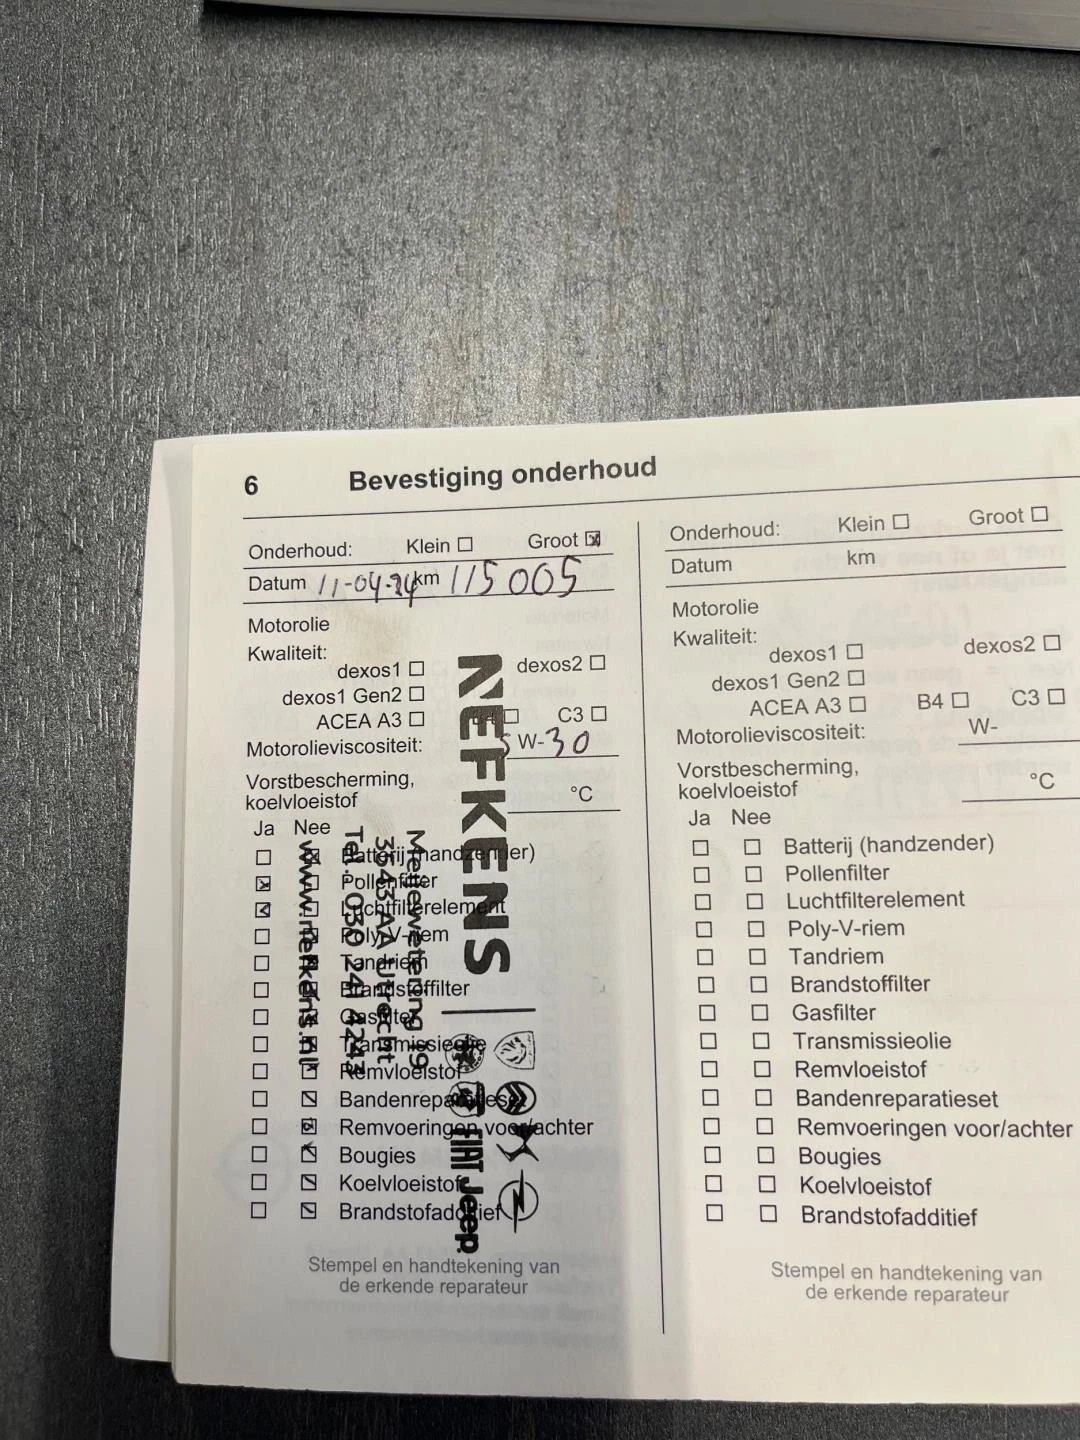 6 Bevestiging onderhoud
Onderhoud: Klein Groot
Datum 11-04-24 km 115005
Motorolie
Kwaliteit:
dexos1 dexos2
dexos1 Gen2
ACEA A3 B4 C3
Motorolieviscositeit: 5 W-30
Vorstbescherming,
koelvloeistof °C
Ja Nee
Batterij (handzender)
Pollenfilter
Luchtfilterelement
Poly-V-riem
Tandriem
Brandstoffilter
Gasfilter
Transmissieolie
Remvloeistof
Bandenreparatieset
Remvoeringen voor/achter
Bougies
Koelvloeistof
Brandstofadditief
Stempel en handtekening van
de erkende reparateur
NEFKENS
Meijewetering 19
3543 AA Utrecht
Tel.: 030 241 4243
www.nefkens.nl
FIAT Jeep
Onderhoud: Klein Groot
Datum km
Motorolie
Kwaliteit:
dexos1 dexos2
dexos1 Gen2
ACEA A3 B4 C3
Motorolieviscositeit: W-
Vorstbescherming,
koelvloeistof °C
Ja Nee
Batterij (handzender)
Pollenfilter
Luchtfilterelement
Poly-V-riem
Tandriem
Brandstoffilter
Gasfilter
Transmissieolie
Remvloeistof
Bandenreparatieset
Remvoeringen voor/achter
Bougies
Koelvloeistof
Brandstofadditief
Stempel en handtekening van
de erkende reparateur